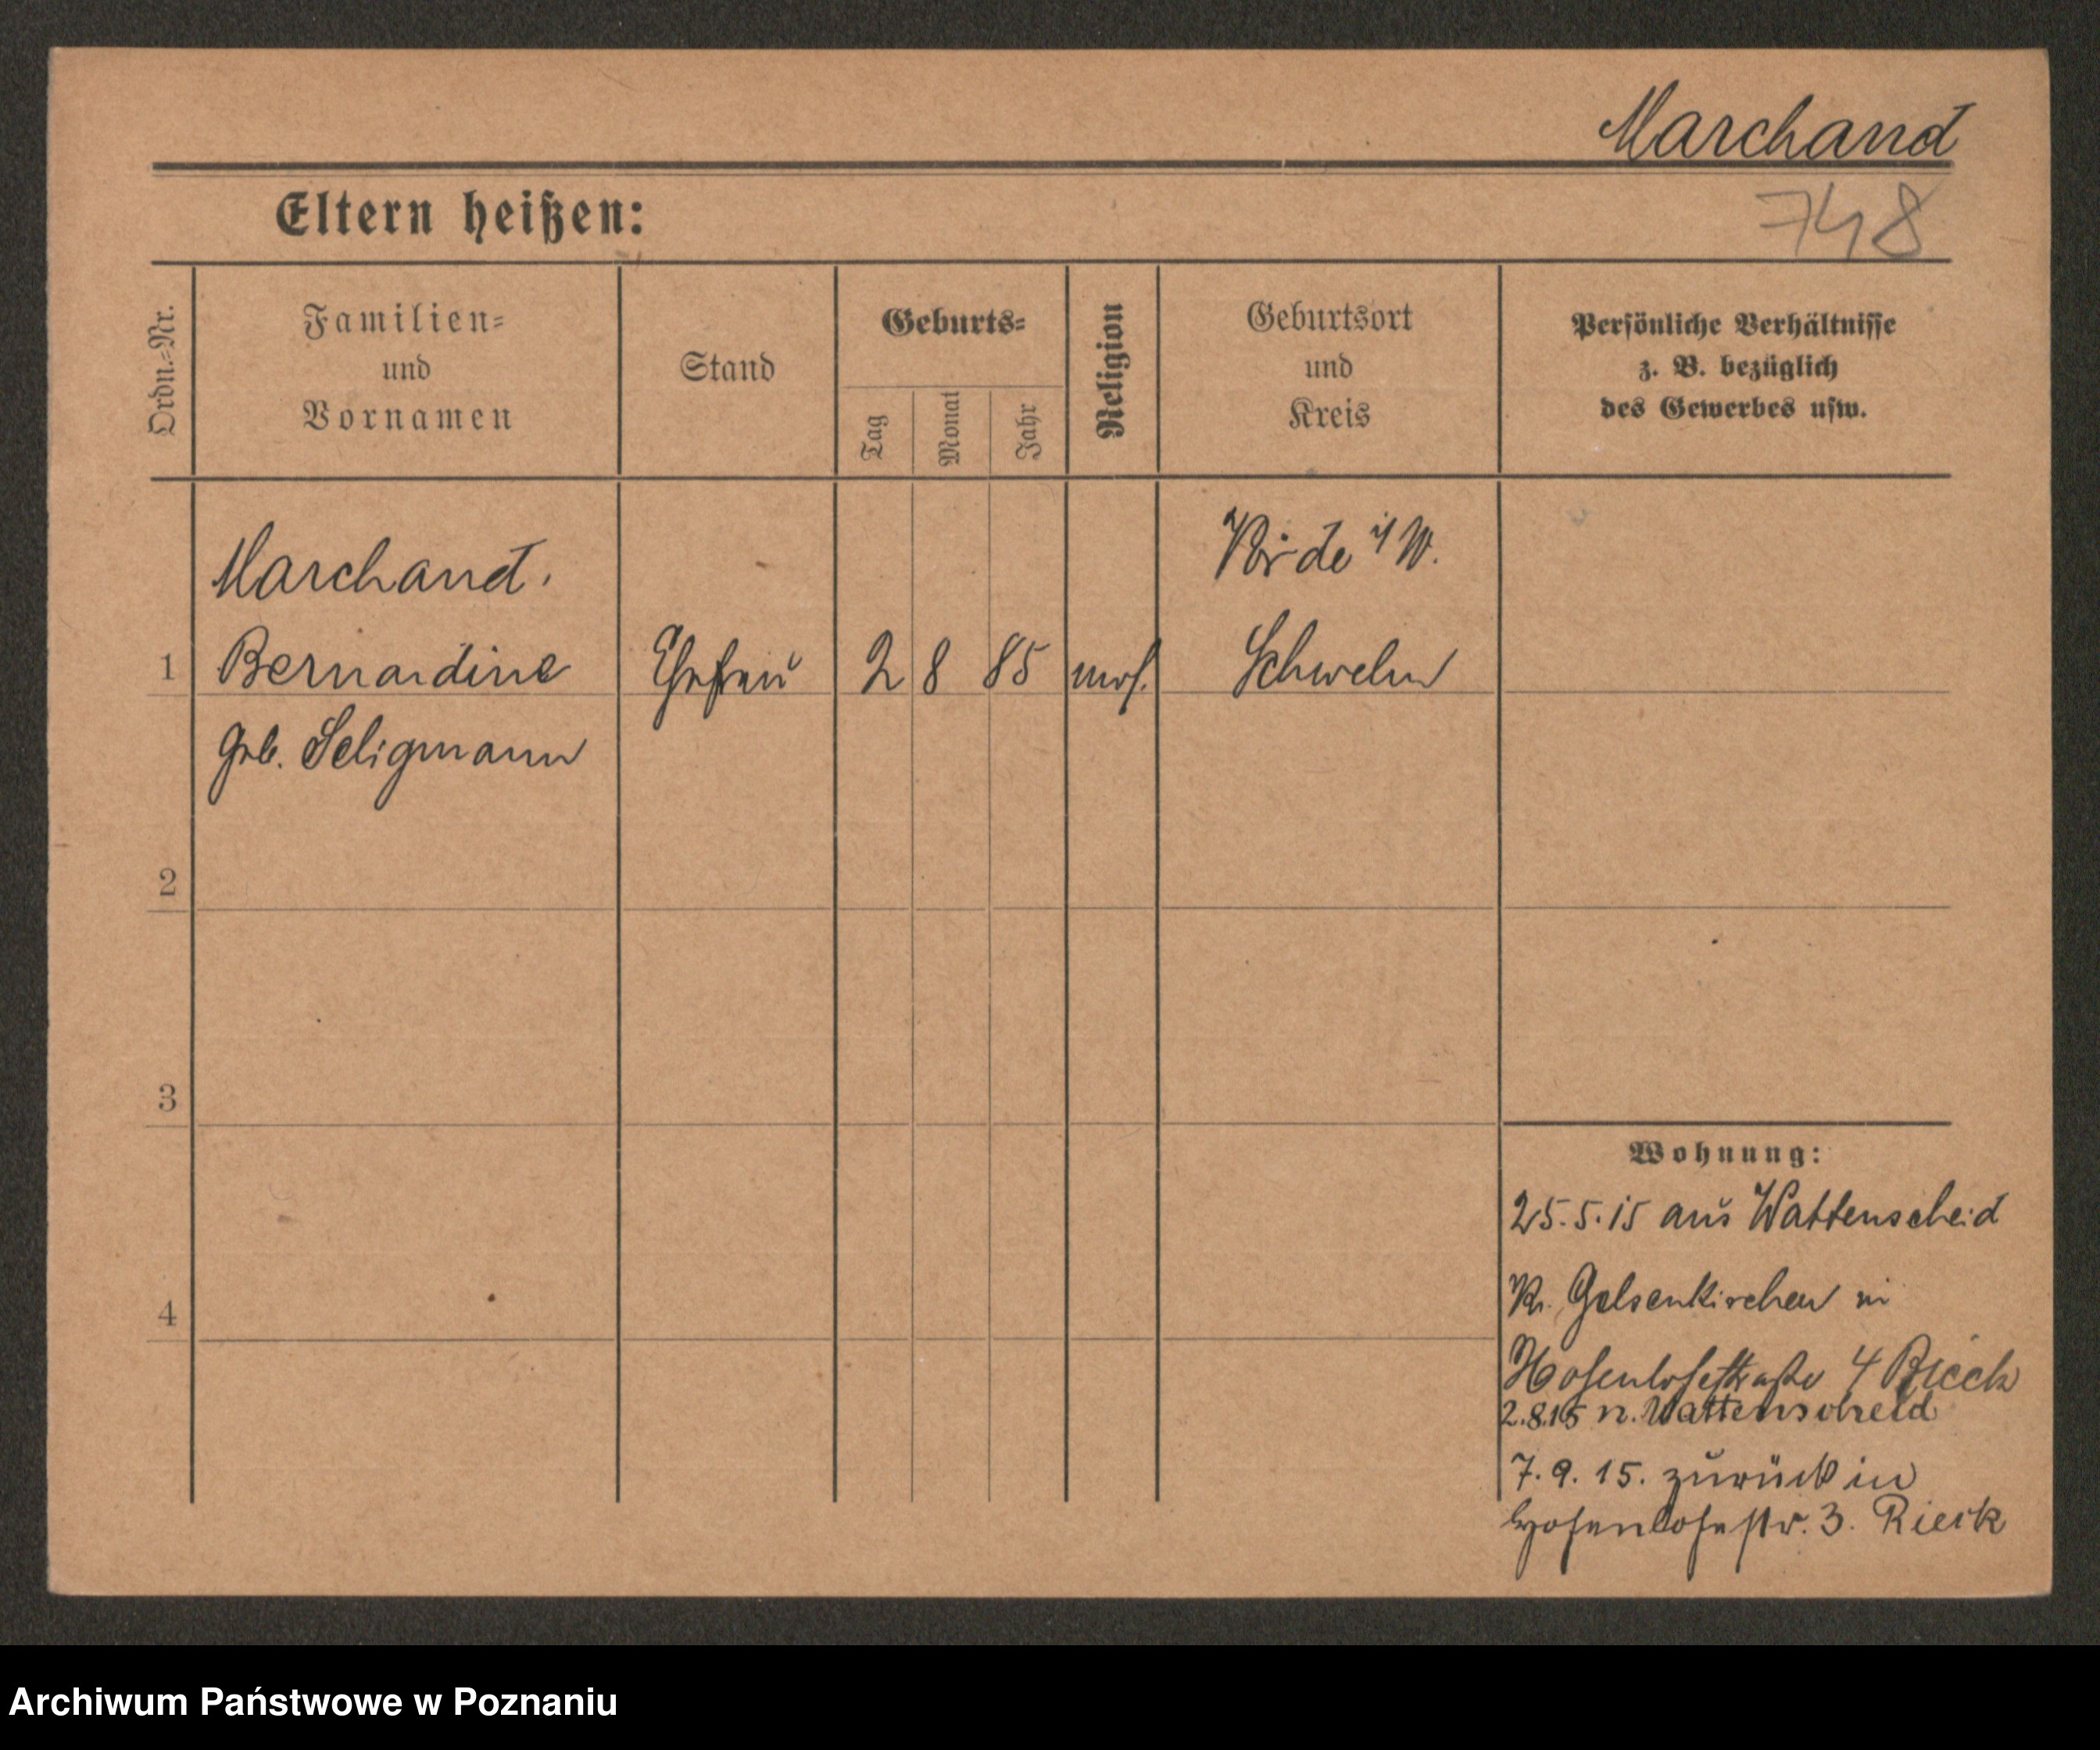 Marchand
748
Eltern heißen:
Ordn.-Nr.
Familien-
und
Vornamen
Stand
Geburts-
Tag
Monat
Jahr
Religion
Geburtsort
und
Kreis
Persönliche Verhältnisse
z. B. bezüglich
des Gewerbes usw.
Marchand.
Vörde i/W.
1 Bernardine Ehefrau 2 8 85 mos. Schwelm
geb. Seligmann
2
3
4
Wohnung:
25.5.15 aus Wattenscheid
Kr. Gelsenkirchen in
Hohenlohestraße 4
2.8.15 n. Wattenscheid
7.9.15. zurück in
Hohenlohestr. 3.
Archiwum Państwowe w Poznaniu